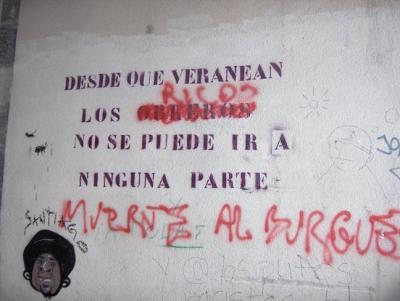 DESDE QUE VERANEAN
RICOS
LOS OBREROS
NO SE PUEDE IR A
NINGUNA PARTE
SANTIAGO
MUERTE AL BURGUÉ